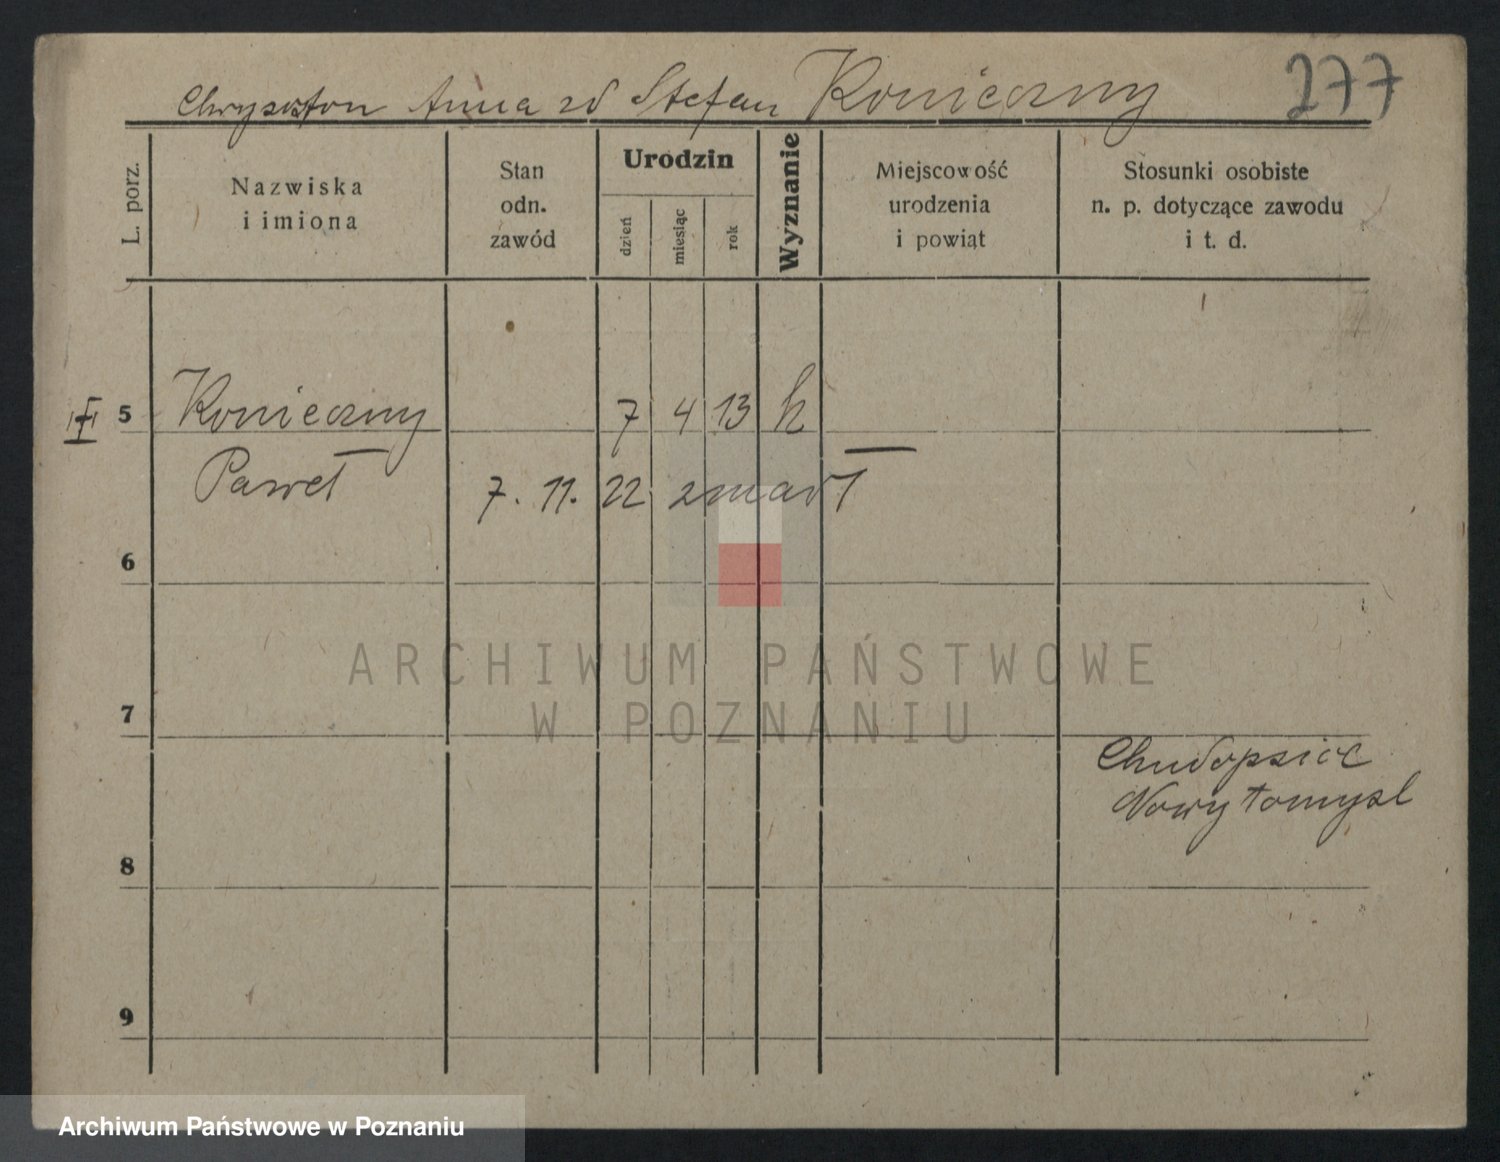 Chryszton Anna zd Stefan Konieczny 277
L. porz.
Nazwiska
i imiona
Stan
odn.
zawód
Urodzin
dzień
miesiąc
rok
Wyznanie
Miejscowość
urodzenia
i powiąt
Stosunki osobiste
n. p. dotyczące zawodu
i t. d.
5 Konieczny 7 4 13 k
Paweł 7. 11. 22 zmarł
6
7
Nowy tomysl
8
9
ARCHIWUM PAŃSTWOWE
W POZNANIU
Archiwum Państwowe w Poznaniu